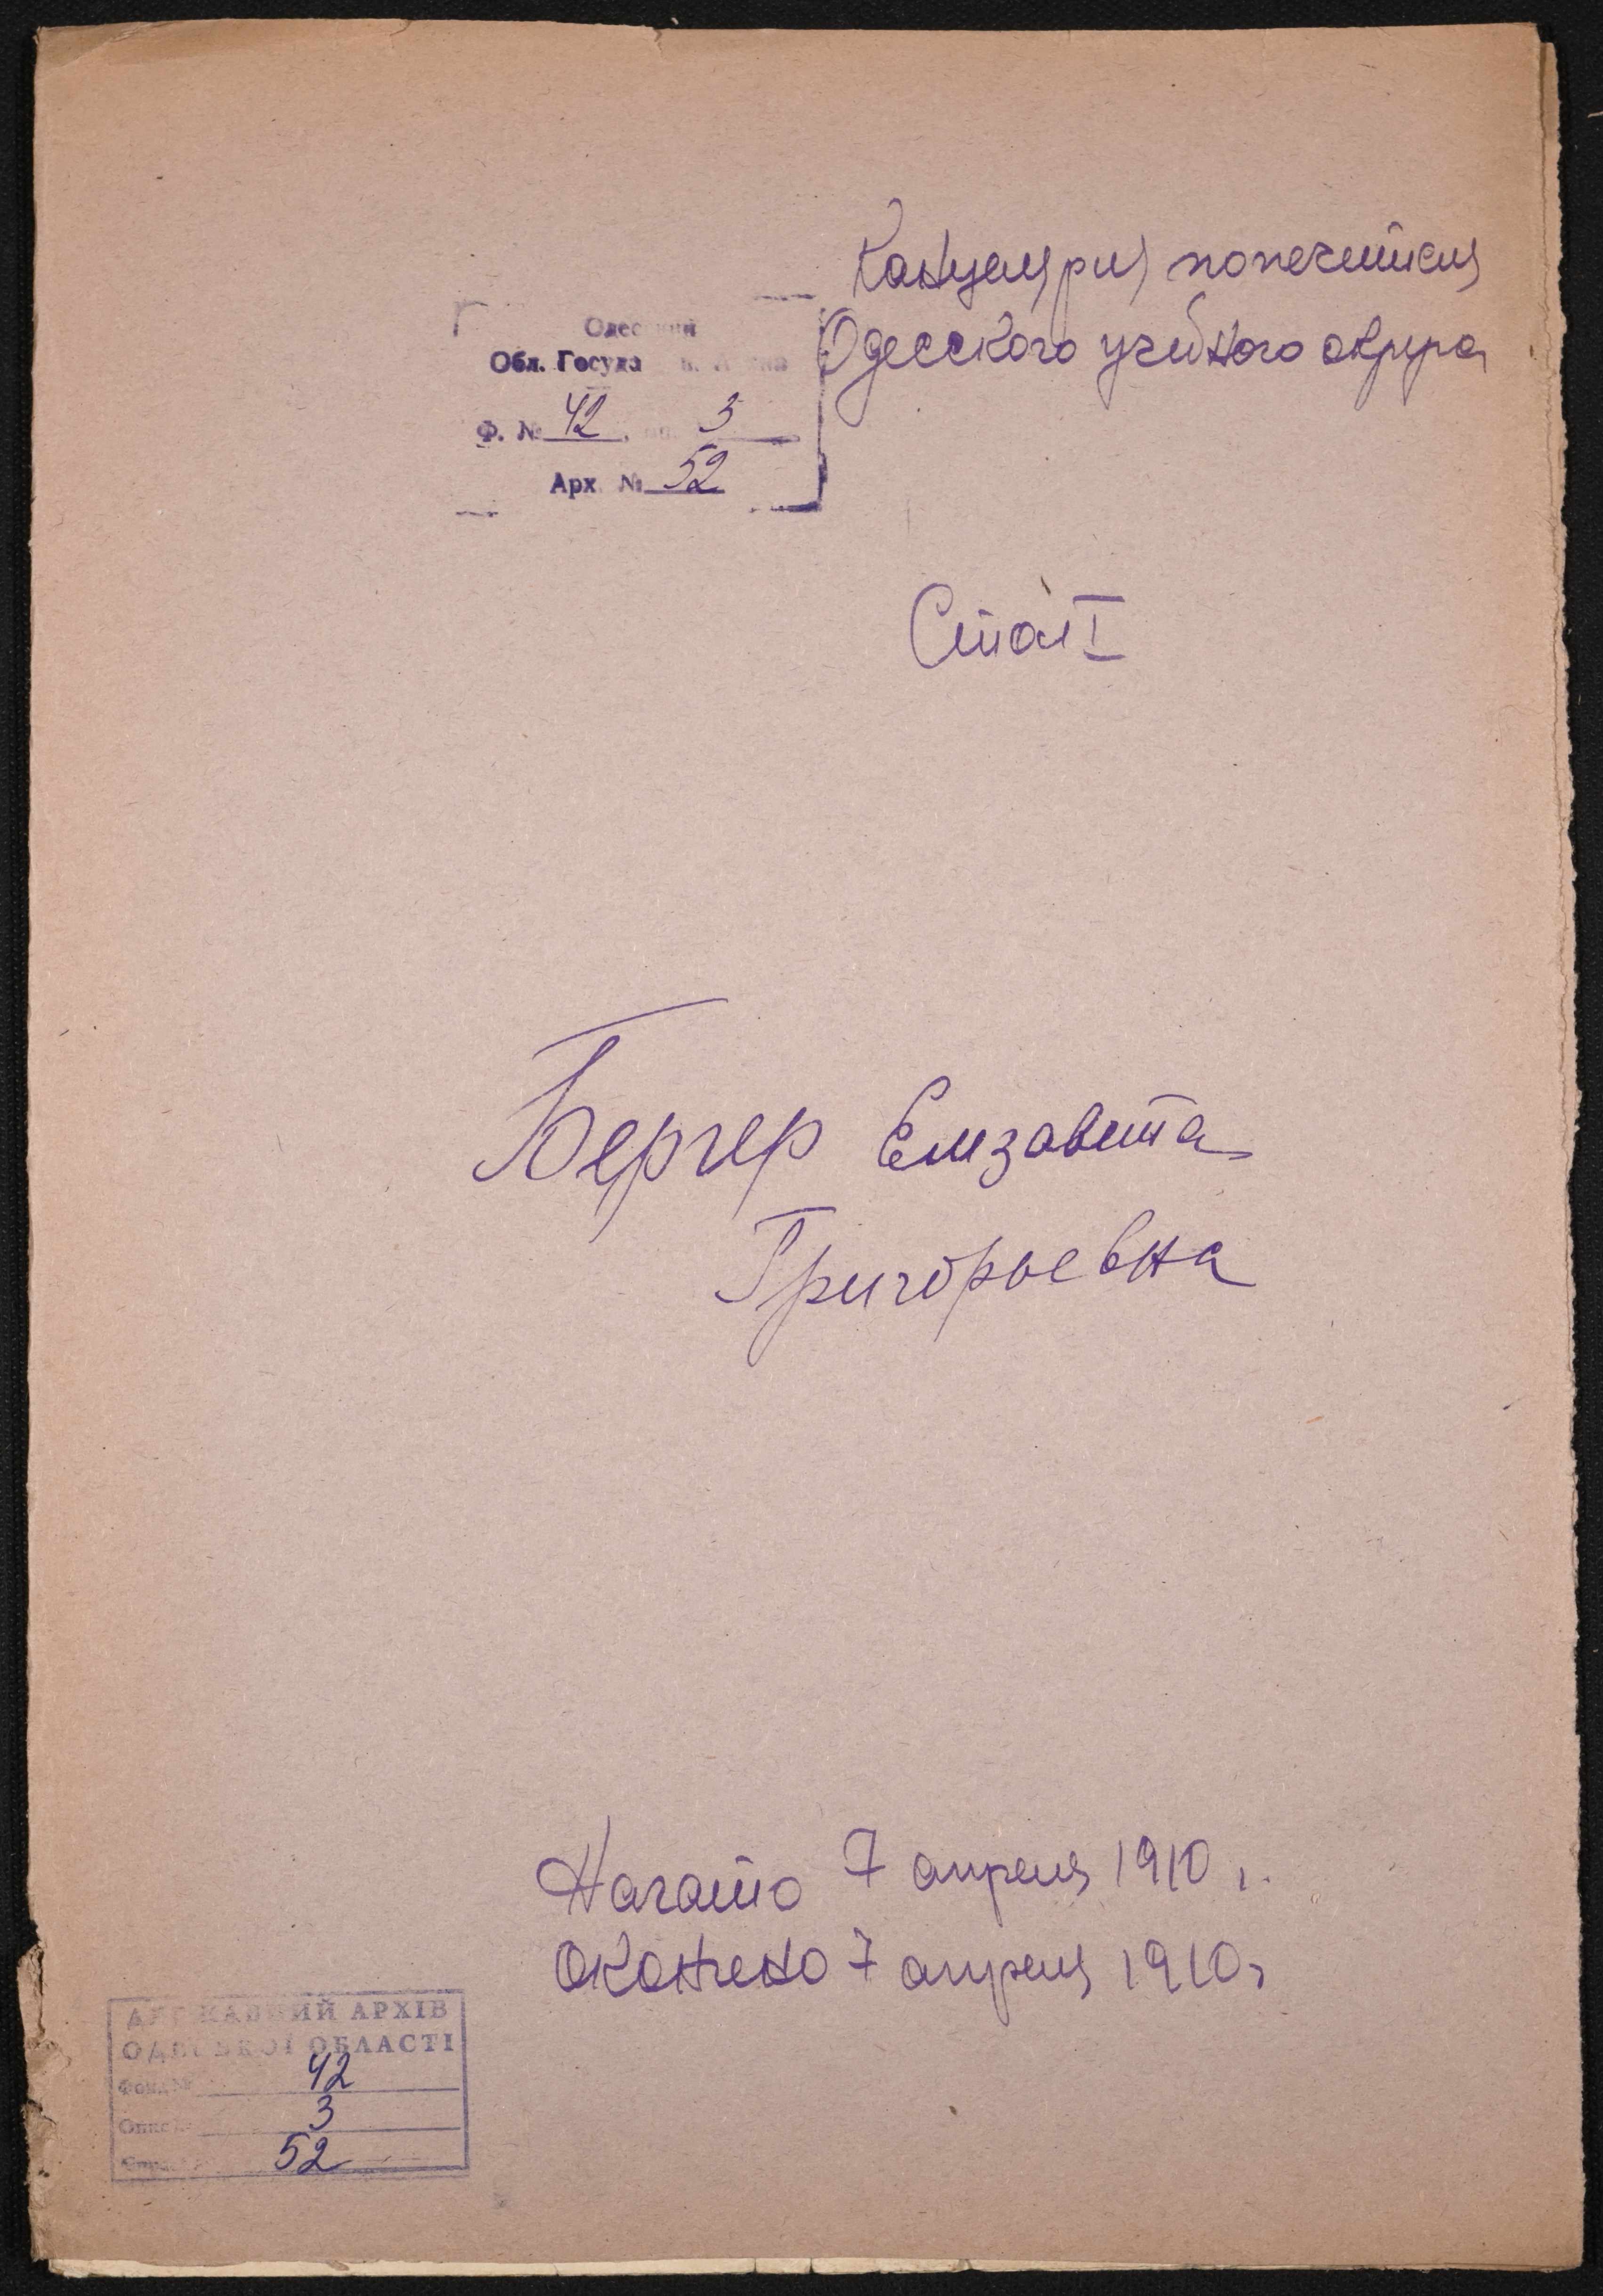 Канцелярия попечителя
Одесского учебного округа
Обл.
Ф. № 42 оп. 3
Арх. № 52
Стол I
Бергер Елизавета
Григорьевна
Начато 7 апреля 1910 г.
Окончено 7 апреля 1910 г
ДЕРЖАВНИЙ АРХІВ
ОДЕСЬКОЇ ОБЛАСТІ
Фонд № 42
Опис 3
52